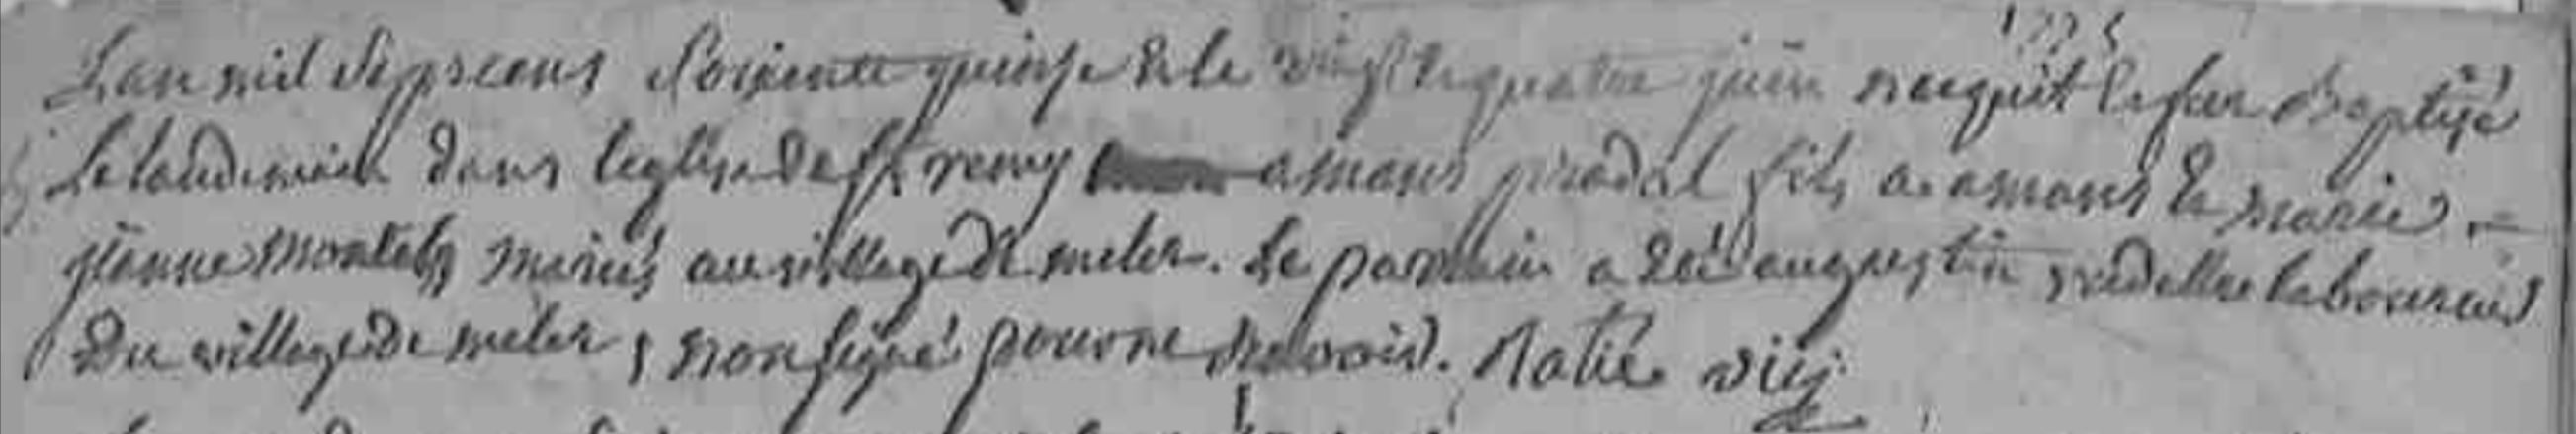 1775
Lan mil sept cens soixente quinse & le vingt & quatre juin naquit & fut baptisé
le landemain dans leglise de st remy amans pradal fils a amans & marie
jeanne mariés au village de meler. Le parrain a été augustin laboureur
Du village de meler, non signé pour ne savoir. Natié vic;